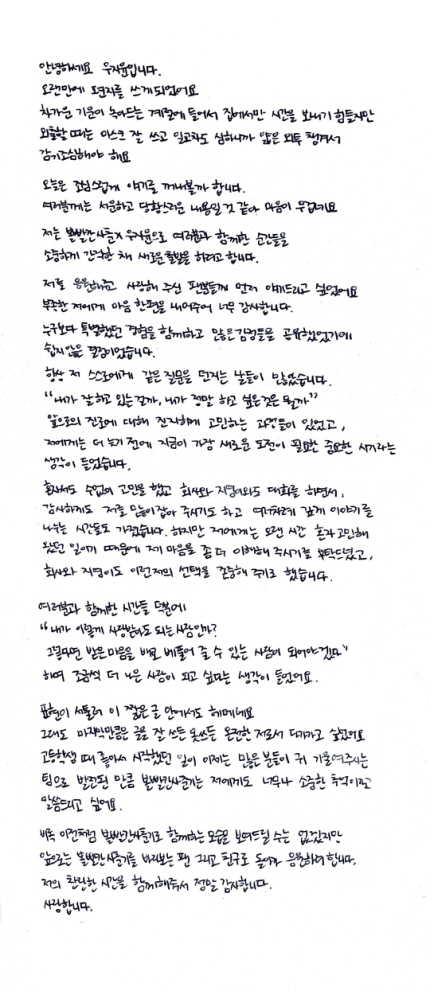 안녕하세요 우지윤입니다.
오랜만에 편지를 쓰게 되었어요
차가운 기운이 녹아드는 계절에 들어서 집에서만 시간을 보내기 힘들지만
외출할 때는 마스크 잘 쓰고 일교차도 심하니까 얇은 외투 챙겨서
감기조심해야 해요
오늘은 조심스럽게 얘기를 꺼내볼까 합니다.
여러분께는 서운하고 당황스러운 내용일 것 같아 마음이 무겁네요
저는 볼빨간사춘기 우지윤으로 여러분과 함께한 순간들을
소중하게 간직한 채 새로운 출발을 하려고 합니다.
저를 응원해주고 사랑해 주신 팬분들께 먼저 얘기드리고 싶었어요
부족한 저에게 마음 한편을 내어주어 너무 감사합니다.
누구보다 특별했던 경험을 함께하고 많은 감정들을 공유했었기에
쉽지않은 결정이었습니다.
항상 저 스스로에게 같은 질문을 던지는 날들이 많았습니다.
“내가 잘하고 있는걸까, 내가 정말 하고 싶은것은 뭘까”
앞으로의 진로에 대해 진지하게 고민하는 과정들이 있었고,
저에게는 더 늦기 전에 지금이 가장 새로운 도전이 필요한 중요한 시기라는
생각이 들었습니다.
혼자서도 수없이 고민을 했고 회사와 지영이와도 대화를 하면서,
감사하게도 저를 많이 잡아 주시기도 하고 여러차례 깊게 이야기를
나누는 시간들도 가졌습니다. 하지만 저에게는 오랜 시간 혼자 고민해
왔던 일이기 때문에 제 마음을 좀 더 이해해 주시기를 부탁드렸고,
회사와 지영이도 이런 저의 선택을 존중해 주기로 했습니다.
여러분과 함께한 시간들 덕분에
“내가 이렇게 사랑받아도 되는 사람인가?
그렇다면 받은 마음을 배로 베풀어 줄 수 있는 사람이 되어야겠다”
하며 조금씩 더 나은 사람이 되고 싶다는 생각이 들었어요.
표현이 서툴러 이 짧은 글 안에서도 헤매네요
그래도 마지막만큼은 글을 잘 쓰든 못쓰든 온전한 저로서 다가가고 싶었어요
고등학생 때 좋아서 시작했던 일이 이제는 많은 분들이 귀 기울여주시는
팀으로 발전된 만큼 볼빨간사춘기는 저에게도 너무나 소중한 추억이라고
말씀드리고 싶어요.
비록 이전처럼 볼빨간사춘기로 함께하는 모습을 보여드릴 수는 없겠지만
앞으로는 볼빨간 사춘기를 바라보는 팬 그리고 친구로 돌아가 응원하려 합니다.
저의 찬란한 시간을 함께해주셔서 정말 감사합니다.
사랑합니다.